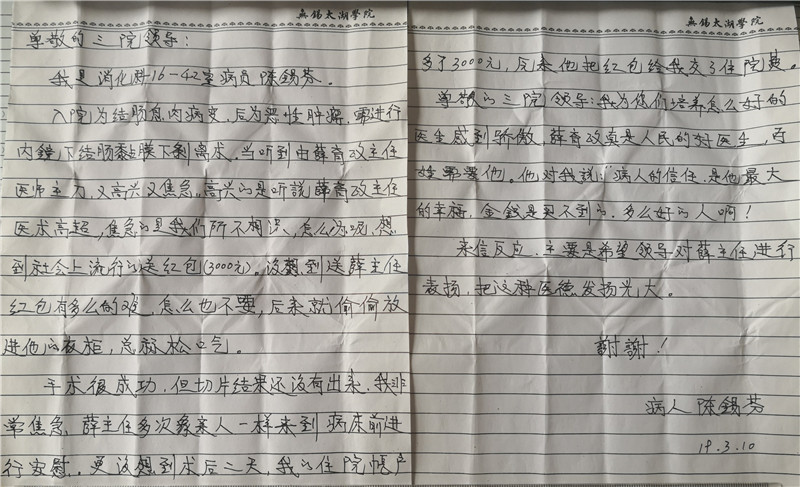 無锡太湖學院
尊敬的三院领导:
我是消化科16-42室病员陈錫芬。
入院为结肠息肉病变,后为恶性肿瘤,需进行
内鏡下结肠黏膜下剥离术。当听到由薛育政主任
医师主刀,又高兴又焦急。高兴的是听說薛育政主任
医术高超,焦急的是我们所不相识,怎么办呢,想
到社会上流行的送红包(3000元)。没想到送薛主任
红包有多么的难,怎么也不要,后来就偷偷放
进他的衣柜,总称松口气。
手术很成功,但切片结果还没有出来,我非
常焦急,薛主任多次象亲人一样来到病床前进
行安慰。更没想到术后二天,我的住院帳户
無锡太湖學院
多了3000元,后来他把红包给我交了住院费。
尊敬的三院领导:我为你们培养怎么好的
医生感到骄傲,薛育政真是人民的好医生,百
姓需要他。他对我說:“病人的信任,是他最大
的幸福,金錢是买不到的,多么好的人啊!
来信反应,主要是希望领导对薛主任进行
表扬,把这种医德发扬光大。
謝謝!
病人 陈錫芬
19.3.10